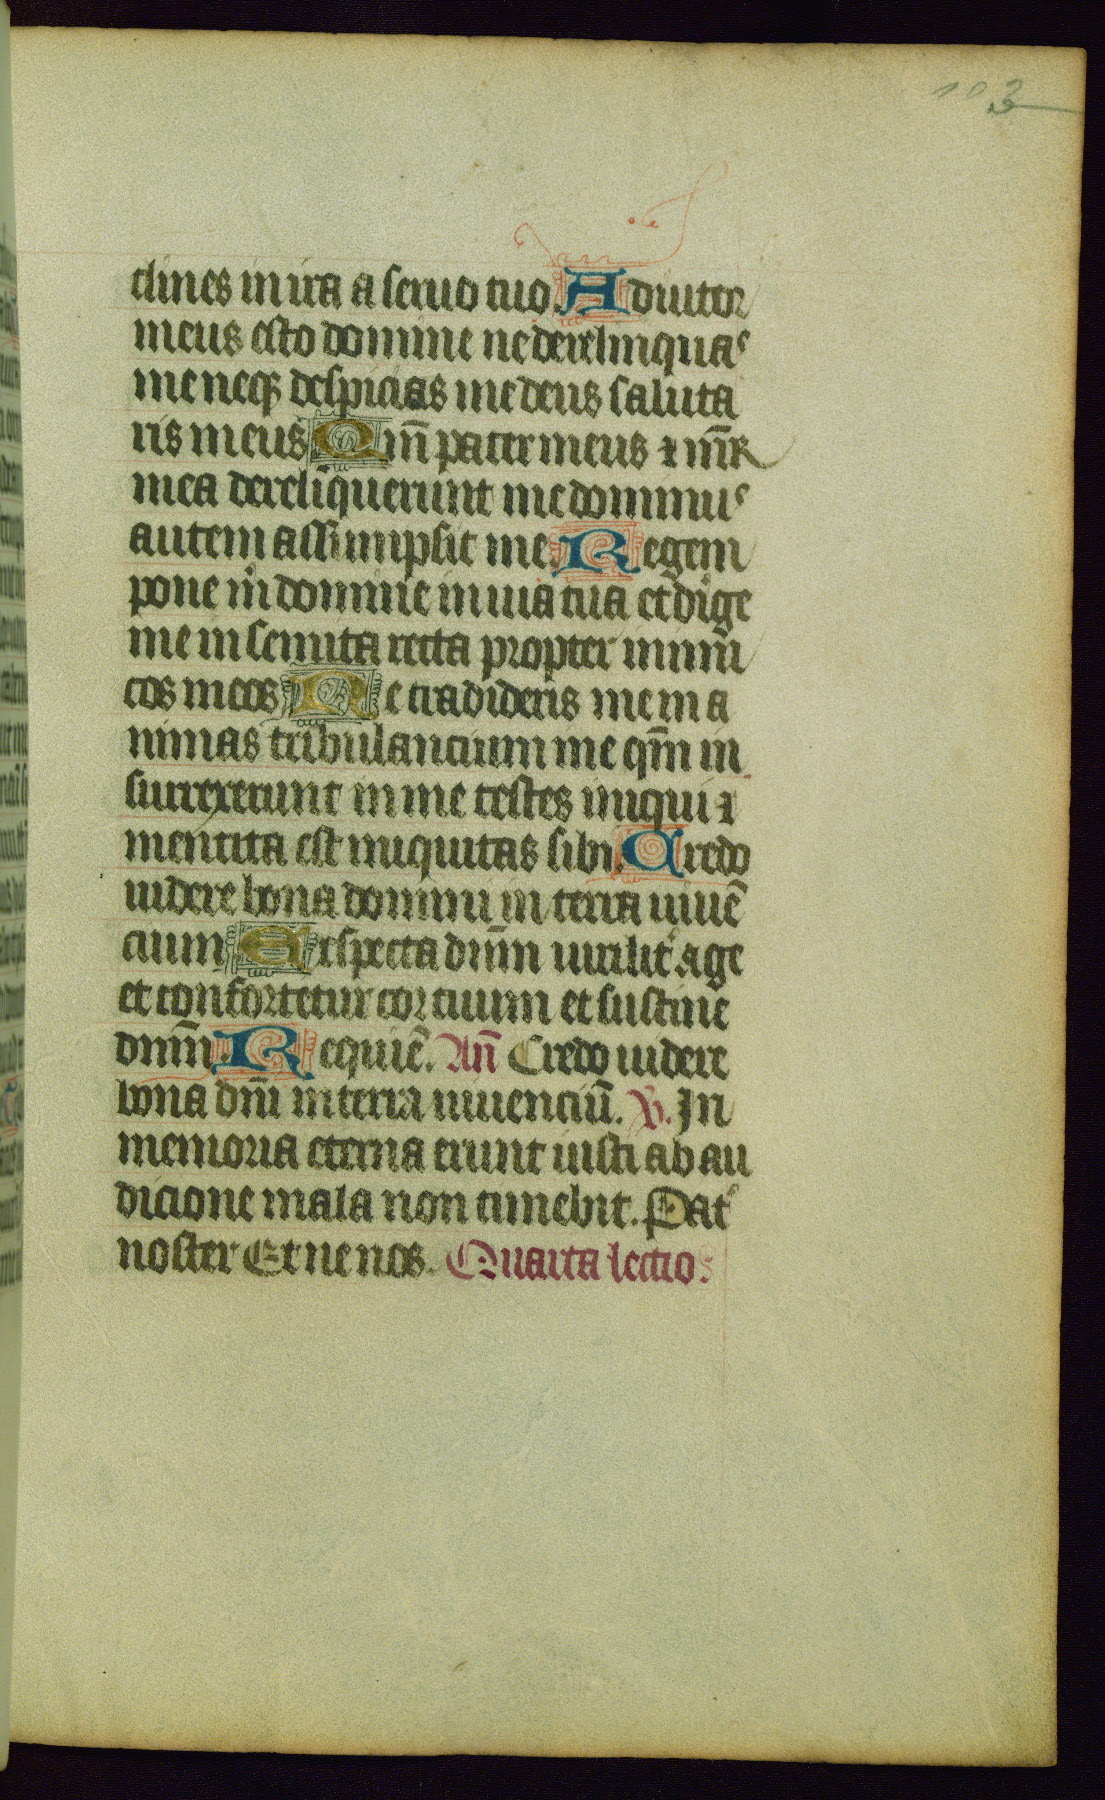 103
clines in ira a seruo tuo. Adiutor
meus esto domine ne derelinquas
me neqꝫ despicias me deus saluta
ris meus Qm̄ pater meus ⁊ mr̄
mea dereliquerunt me dominus
autem assumpsit me. Legem
pone m̄ domine in uia tua et dige
me in semita recta propter inimi
cos meos Ne tradideris me in a
nimas tribulancium me qm̄ in
surrexerunt in me testes iniqui ⁊
mentita est iniquitas sibi. Credo
uidere bona domini in terra uiuē
cium Expecta dnm̄ uirilit age
et confortetur cor tuum et sustine
dnm̄. Requiē. An̄ Credo uidere
bona dnī in terra uiuenciū. V. In
memoria eterna erunt iusti ab au
dicione mala non timebit. Pat
noster Et ne nos. Quarta lectio.